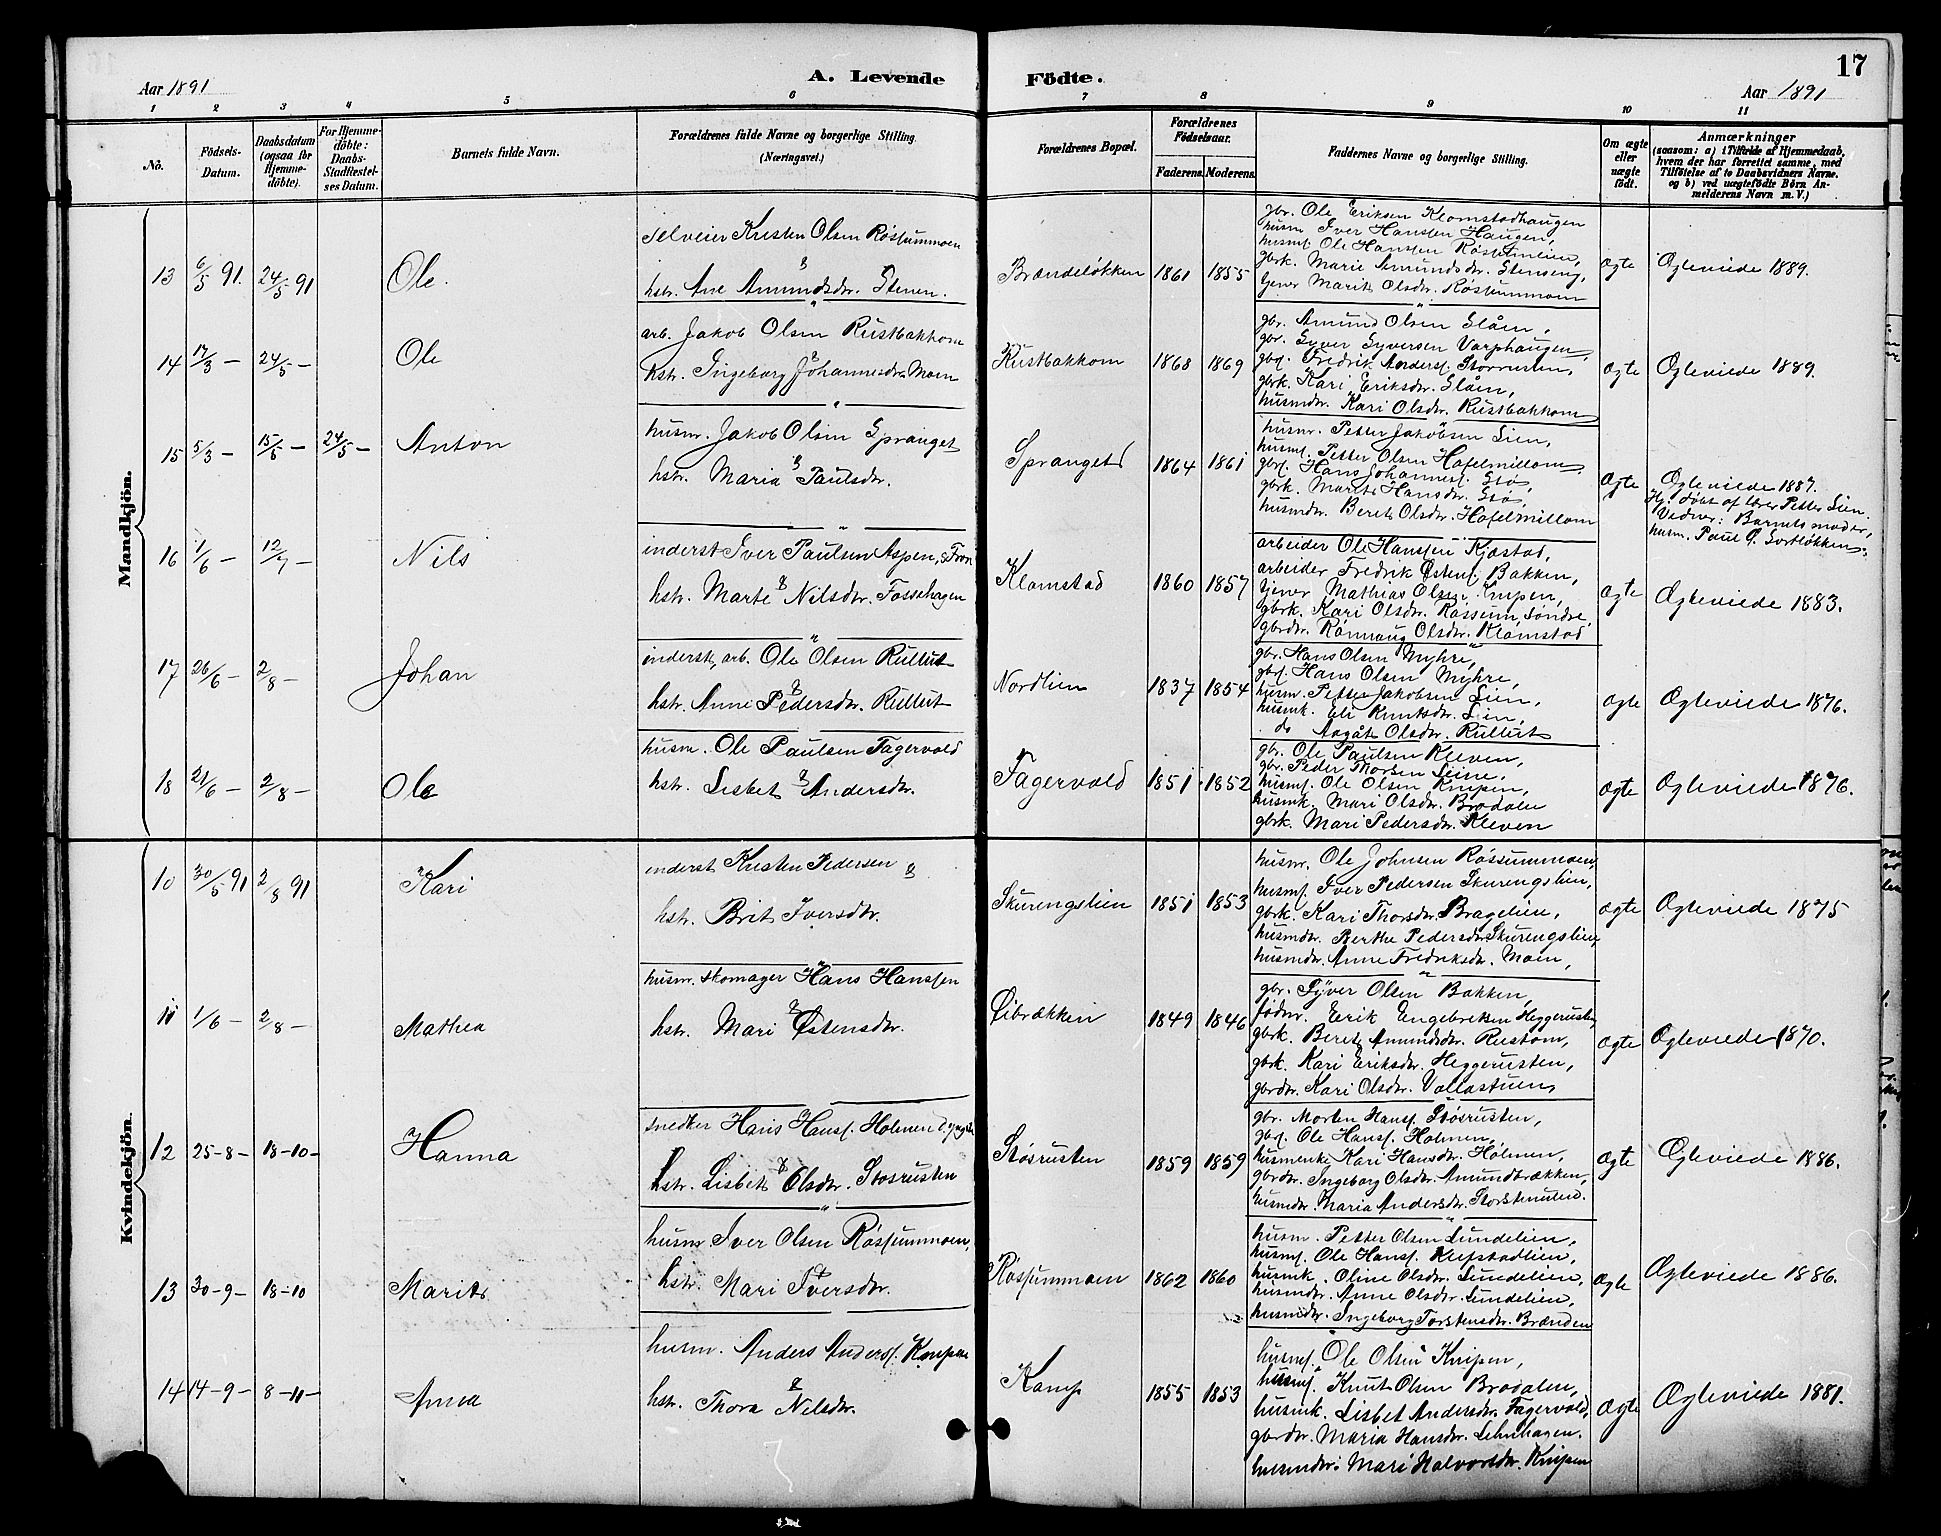 17
Aar 1891 A. Levende Födte. Aar 1891
1 2 3 4 5 6 7 8 9 10 11
No.
Födsels-Datum.
Daabsdatum (ogsaa for Hjemme-döbte).
For Hjemme-döbte: Daabs-Stadfæstel-ses Datum.
Barnets fulde Navn.
Forældrenes fulde Navne og borgerlige Stilling. (Næringsvei.)
Forældrenes Bopæl.
Forældrenes Födselsaar.
Faderens. Moderens.
Faddernes Navne og borgerlige Stilling.
Om ægte eller uægte födt.
Anmærkninger
(saasom: a) i Tilfælde af Hjemmedaab, hvem der har forrettet samme, med Tilföielse af to Daabsvidners Navne. og b) ved uægtefödte Börn An-melderens Navn m. V.)
Mandkjön.
13 6/5 91. 24/5 91 Ole.
selveier Kristen Olsen Røssummoen
&
hstr. Ane Amundsdtr. Stenen.
Brændeløkken 1861 1855
gbr. Ole Eriksen Klomstadhaugen
husm Iver Hanssen Haugen,
husmf. Ole Hanssen Røssumeien,
gbrk. Marie Amundsdr. Stenseng,
tjener Marit Olsdtr. Røssummoen
ægte Ægteviede 1889.
14 17/3 - 24/5 - Ole
arb. Jakob Olsen Rustbakhom
&
hstr. Ingeborg Johannesdtr. Moen
Rustbakkom 1868 1869
gbr. Amund Olsen Slåen,
gbr. Syver Syversen Varphaugen,
gbf. Fredrik Anderss. Storrusten,
gbrk. Kari Eriksdtr. Slåen,
husmdtr. Kari Olsdtr. Rustbakhom
ægte Ægteviede 1889.
15 5/3 - 15/5 - 24/5 - Anton
husm. Jakob Olsen Spranget
&
hstr. Maria Paulsdtr.
Spranget 1864 1861
husm. Petter Jakobsen Lien,
husmf. Petter Olsen Hafelmillom,
gbrf. Hans Johanness. Stø,
gbrk. Marit Hansdtr. Stø,
husmdtr. Berit Olsdtr. Hafelmillom
ægte Ægteviede 1887.
Hj. døbt af lærer Petter Lien.
Vidner: Barnets moder,
husm. Paul O. Sortløkken.
16 1/6 - 12/7 - Nils
inderst Iver Paulsen Aspen, S. Fron
&
hstr. Marte Nilsdtr. Fossehagen
Klomstad 1860 1857
arbeider Ole Hanssen Kjæstad,
arbeider Fredrik Østens. Bakken,
tjener Mathias Olsen Knipen,
gbrk. Kari Olsdtr. Røssum søndre,
gbrdtr. Rønnaug Olsdtr. Klomstad
ægte Ægteviede 1883.
17 26/6 - 2/8 - Johan
inderst, arb. Ole Olsen Rullut
&
hstr. Anne Pedersdtr. Rullut
Nordlien 1837 1854
gbr. Hans Olsen Myhre,
gbf. Hans Olsen Myhre,
husm. Petter Jakobsen Lien,
husmk. Eli Knutsdtr. Lien,
do Aagåt Olsdtr. Rullut
ægte Ægteviede 1876.
18 21/6 - 2/8 - Ole
husm. Ole Paulsen Fagervold
&
hstr. Lisbet Andersdtr.
Fagervold 1851 1852
gbr. Ole Paulsen Kleven,
gbr. Peder Thorsen Leine,
husmf. Ole Olsen Knipen,
husmk. Mari Olsdtr. Brodalen
gbrk. Mari Pedersdtr. Kleven
ægte Ægteviede 1876.
Kvindekjön.
10 30/5 91 2/8 91 Kari
inderst Kristen Pedersen &
hstr. Brit Iversdtr.
Skurengslien 1851 1853
husm. Ole Johnsen Røssummoen,
husmf. Iver Pedersen Skurengslien,
gbrk. Kari Thorsdtr. Bragelien,
husmdtr. Berthe Pedersdtr. Skurengslien,
husmdtr. Anne Fredriksdtr. Moen,
ægte Ægteviede 1875
11 1/6 - 2/8 - Mathea
husm. skomager Hans Hanssen
&
hstr. Mari Østensdtr.
Øibrækken 1849 1846
gbr. Syver Olsen Bakken,
fødm. Erik Engebretsen Heggerusten,
gbrk. Berit Amundsdtr. Rustom,
gbrk. Kari Eriksdtr. Heggerusten,
gbrdtr. Kari Olsdtr. Vollastuen,
ægte Ægteviede 1870.
12 25-8- 18-10- Hanna
snedker Hans Hanss. Holmen d. yngre
&
hstr. Lisbet Olsdtr. Støsrusten
Støsrusten 1859 1859
gbr. Morten Hanss. Støsrusten,
gbf. Ole Hanss. Holmen,
husmenke Kari Hansdtr. Holmen,
gbrdtr. Ingeborg Olsdtr. Amundbrækken,
husmdtr. Maria Andersdtr. Storstenslien.
ægte Ægteviede 1886.
13 30-9- 18-10 Marit
husm. Iver Olsen Røssummoen,
&
hstr. Mari Iversdtr.
Røssummoen 1862 1860
husm. Petter Olsen Lundelien,
husmf. Ole Hanss. Klefstadlien,
husmk. Oline Olsdtr. Lundelien,
husmdtr. Anne Olsdtr. Lundelien,
husmdtr. Ingeborg Torstensdtr. Brænden
ægte Ægteviede 1886.
14 14-9- 8-11- Anna
husm. Anders Anderss. Knipen
&
hstr. Thora Nilsdtr.
Kamp 1855 1853
husmf. Ole Olsen Knipen,
husmf. Knut Olsen Brodalen,
husmk. Lisbet Andersdtr. Fagervold,
gbrdtr. Maria Hansdtr. Lehnhagen.
husmdtr. Mari Halvorsdtr. Knipen
ægte Ægteviede 1881.